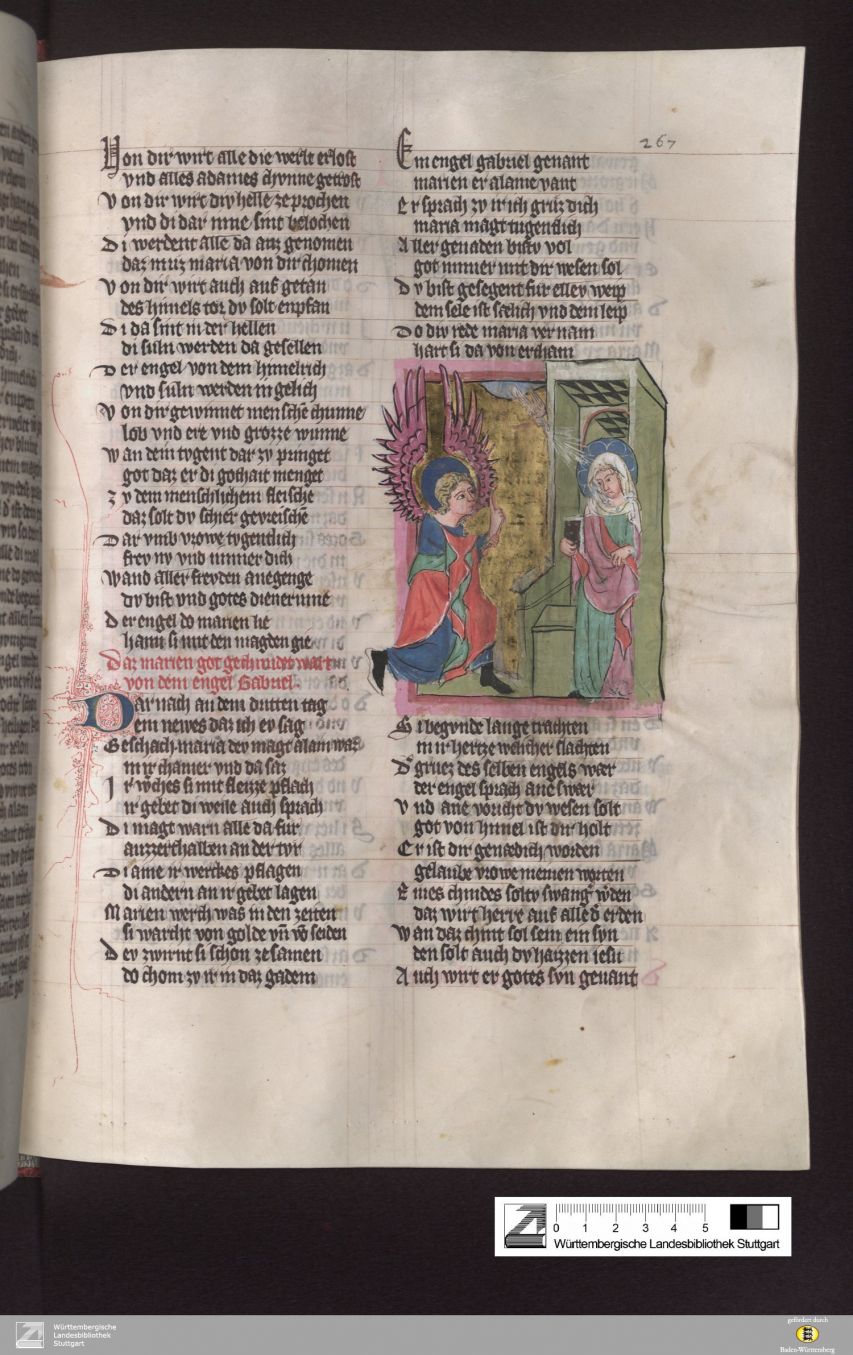 267
Von dir wirt alle die werlt erlost
vnd alles adames chvnne getrost
Von dir wirt div helle zeprochen
vnd di dar inne sint belochen
Di werdent alle da auz genomen
daz muz maria von dir chomen
Von dir wirt auch auf getan
des himels tor dv solt enpfan
Di da sint in der hellen
di suln werden da gesellen
Der engel von dem himelrich
vnd suln werden in gelich
Von dir gewinnet mensche chunne
lob vnd ere vnd grozze wunne
Wan dein tvgent dar zv pringet
got daz er di gothait menget
Zv dem menschlichem fleische
daz solt dv schier gevreische
Dar vmb vrowe tvgentlich
frev nv vnd immer dich
Wand aller frevden anegenge
dv bist vnd gotes dienerinne
Der engel do marien lie
hann si mit den magden gie
Daz marien got gechundet wart
von dem engel Gabriel
Dar nach an dem dritten tag
Dem newes daz ich ev sag
Geschach maria dev magt alain was
in ir chamer vnd da saz
Ir wches si mit fleizze pflach
ir gebet di weile auch sprach
Di magt warn alle da fur
auzzerthalben an der tvr
Di aine ir werches pflagen
di andern an ir gebet lagen
Marien werch was in den zeiten
si warcht von golde vn vo seiden
Dev zwirnt si schon zesamen
do chom zv ir in daz gadem
Ein engel gabriel genant
marien er alaine vant
Er sprach zv ir ich grüz dich
maria magt tugentlich
Aller genaden bistv vol
got immer mit dir wesen sol
Dv bist gesegent fur ellev weip
dein sele ist sælich vnd dein leip
Do div rede maria vernam
hart si da von ercham
Si begvnde lange trachten
in ir hertze welicher slachten
D gruez des selben engels wær
der engel sprach ane swær
Vnd ane voricht dv wesen solt
got von himel ist dir holt
Er ist dir genædich worden
gelaube vrowe meinen worten
Eines chindes soltv swang wden
daz wirt herre auf alle d erden
Wan daz chint sol sein ein svn
den solt auch dv haizzen iesu
Auch wirt er gotes svn genant
0 1 2 3 4 5
Württembergische Landesbibliothek Stuttgart
Württembergische
Landesbibliothek
Stuttgart
gefördert durch
Baden-Württemberg